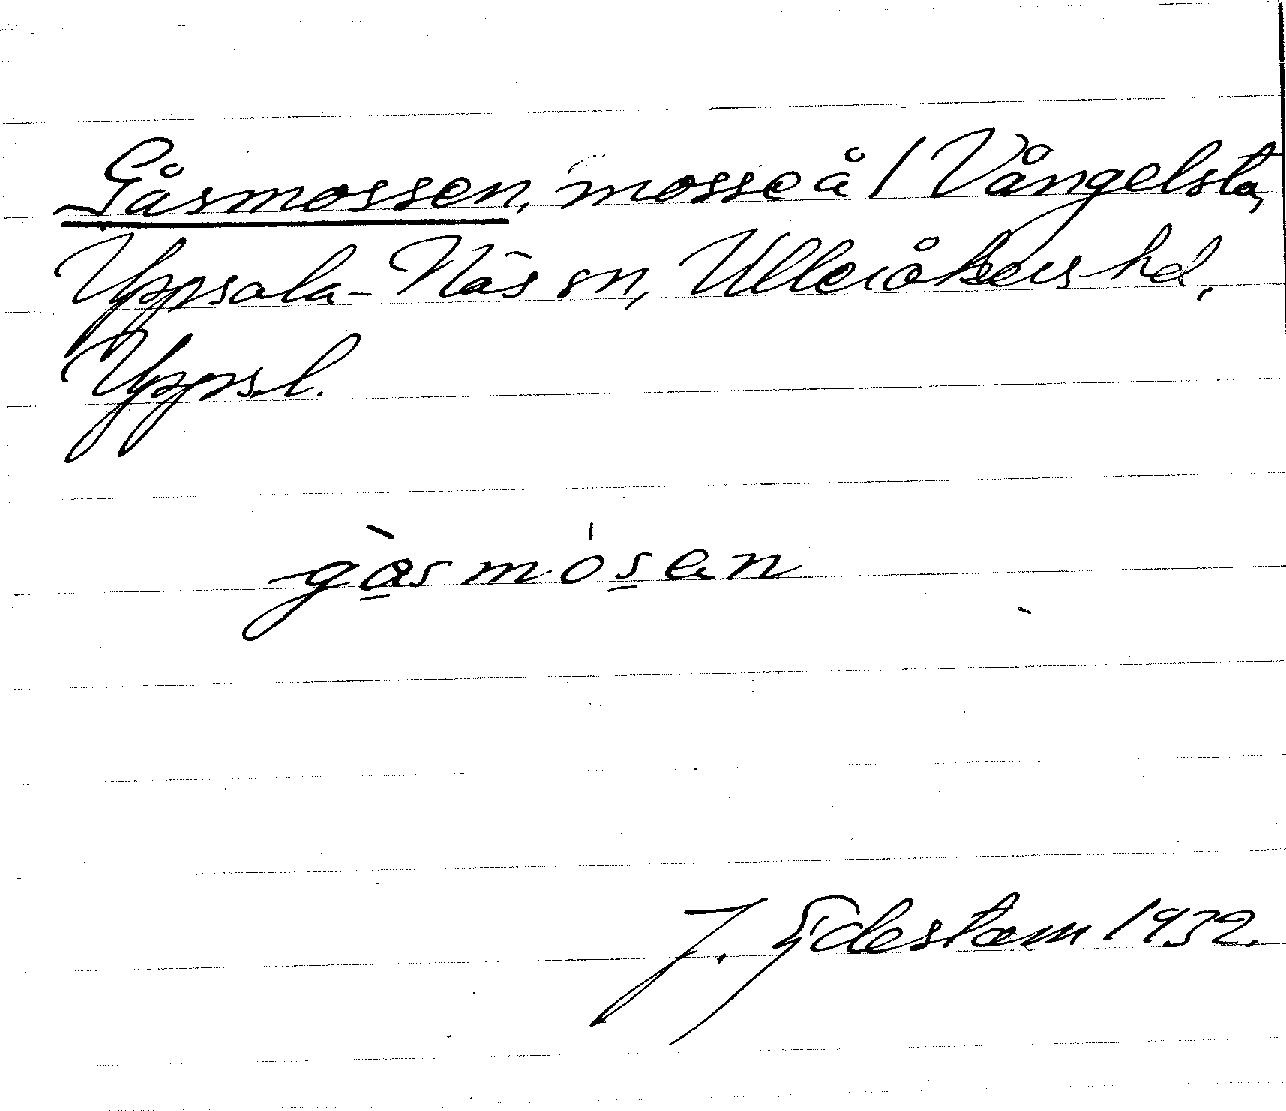 Gåsmossen, mosse å / Vångelsta,
Uppsala-Näs sn, Ulleråkers hd,
Uppsl.
gàsmósen
J. Edestam 1932.